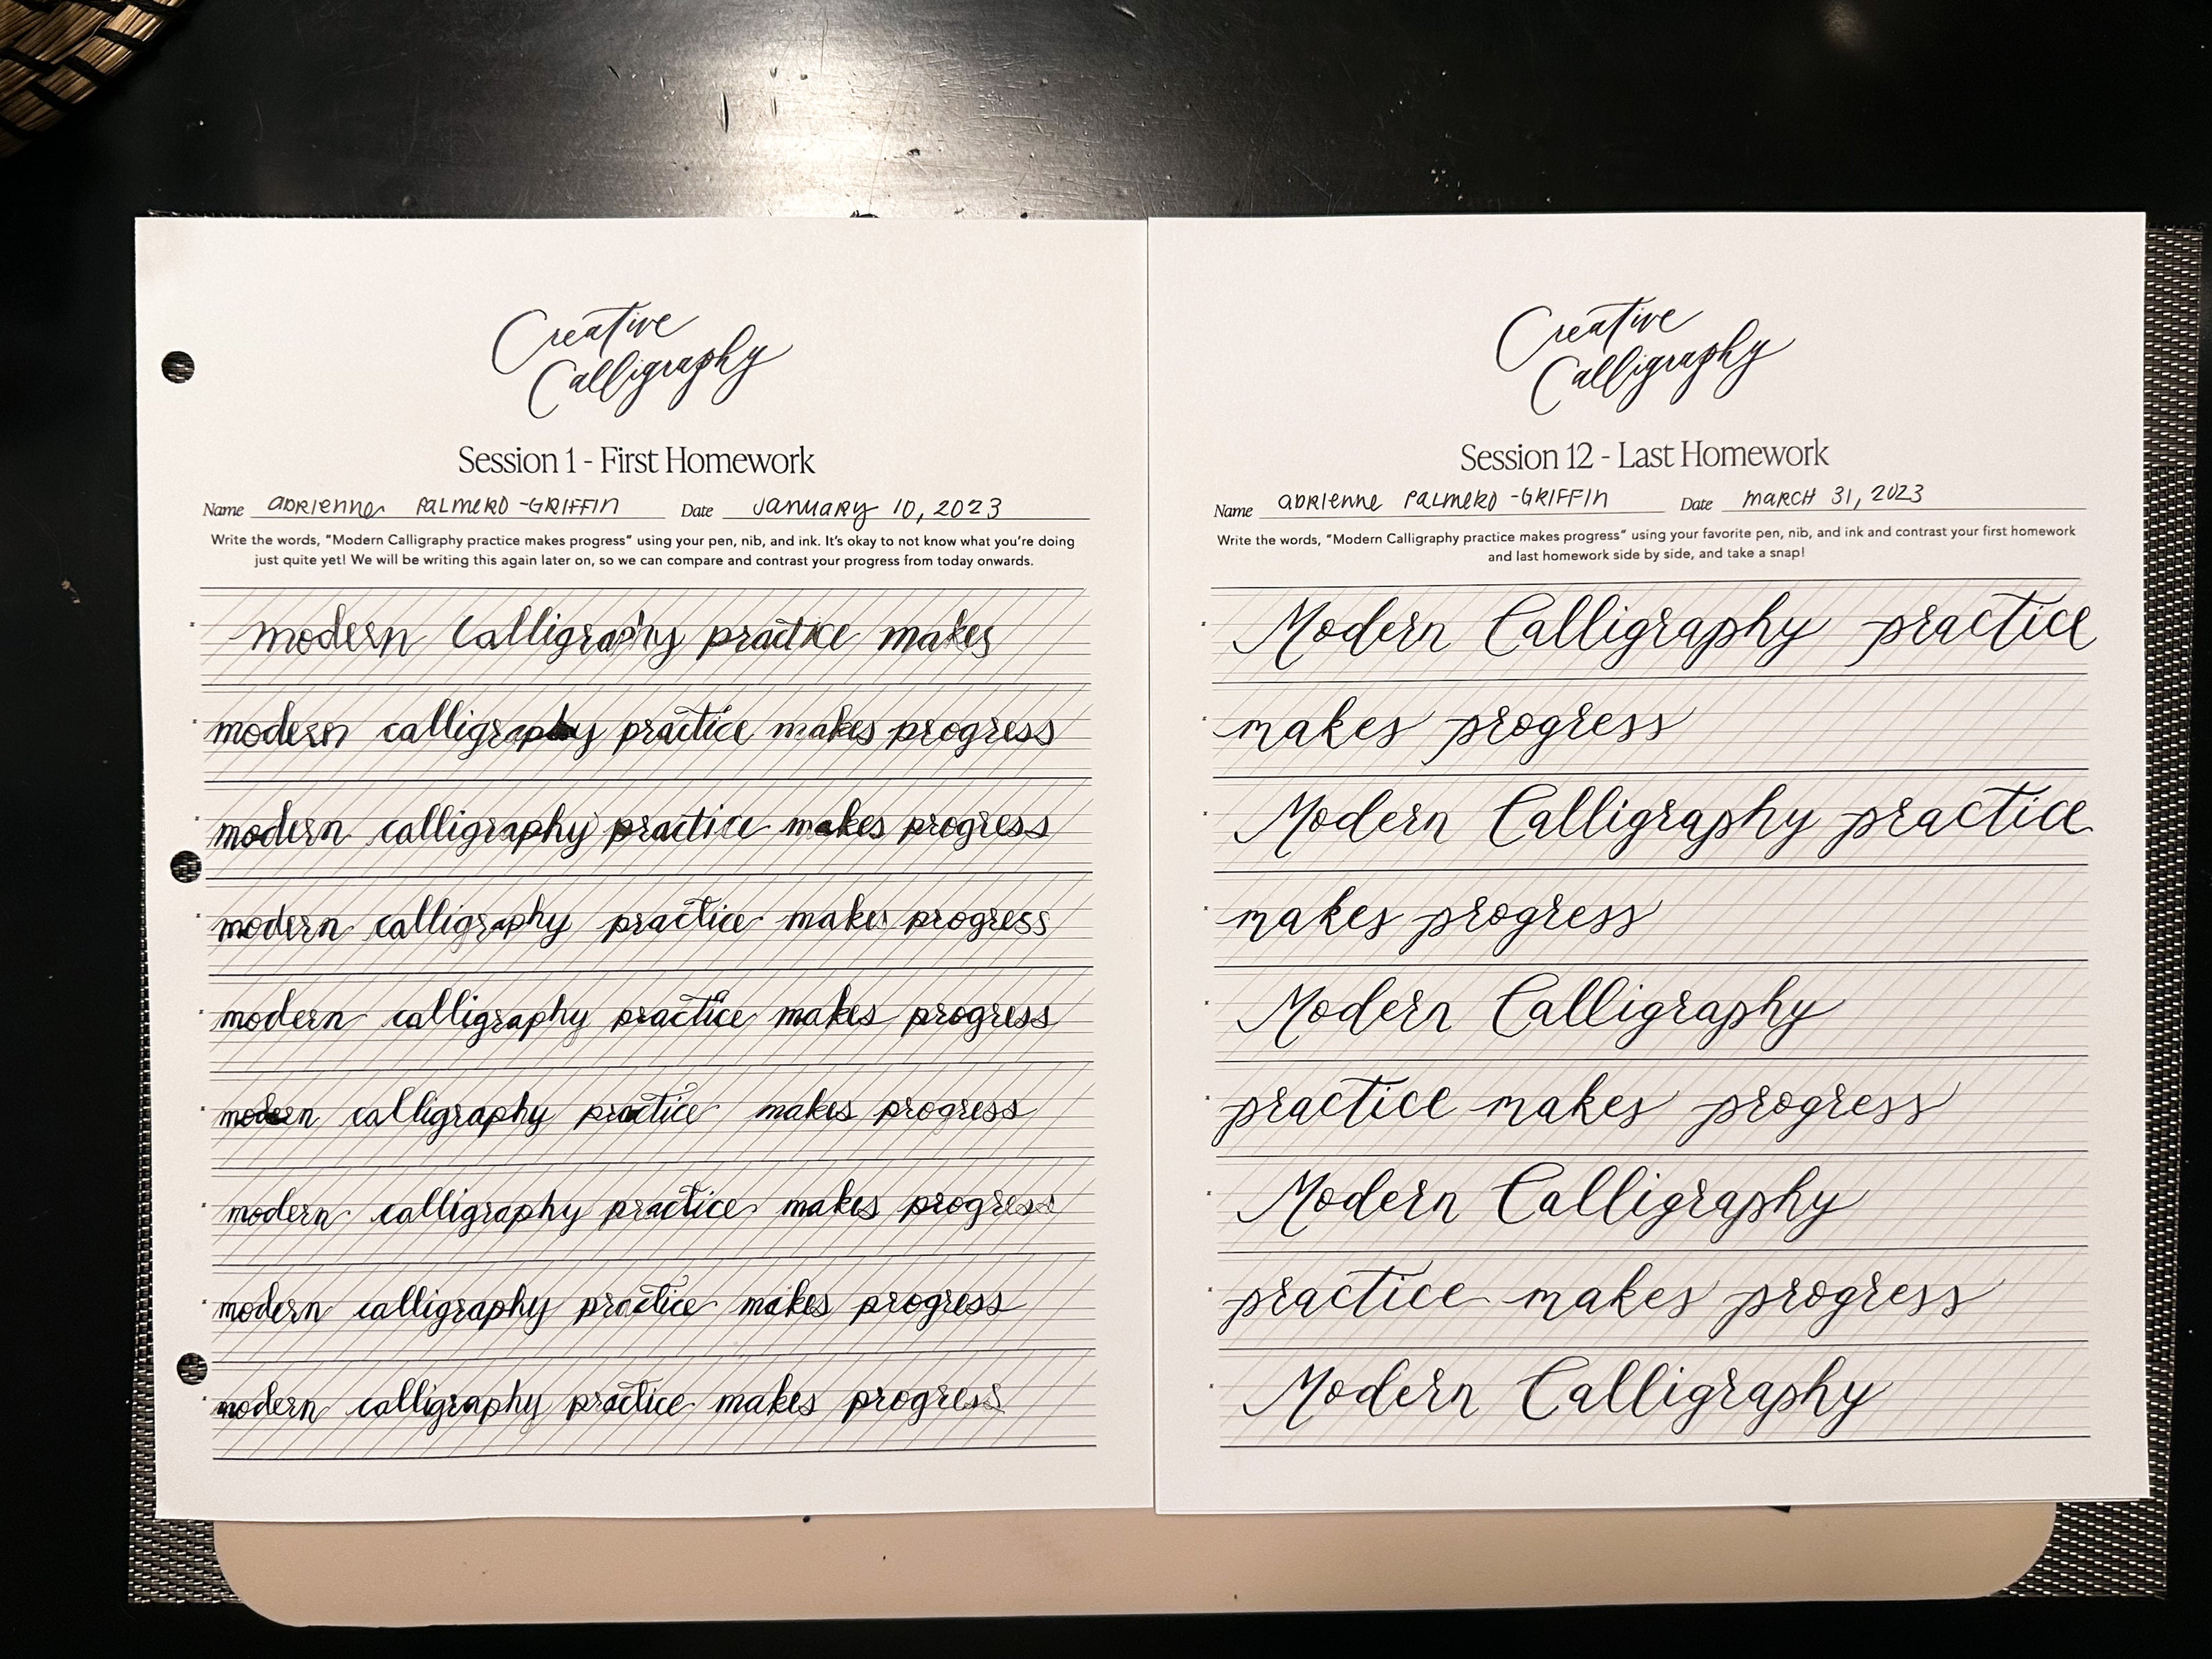 Creative
Calligraphy
Session 1 - First Homework
Name ADRIENNE PALMERO-GRIFFIN Date JANUARY 10, 2023
Write the words, "Modern Calligraphy practice makes progress" using your pen, nib, and ink. It's okay to not know what you're doing
just quite yet! We will be writing this again later on, so we can compare and contrast your progress from today onwards.
modern Calligraphy practice makes
modern calligraphy practice makes progress
modern calligraphy practice makes progress
modern calligraphy practice makes progress
modern calligraphy practice makes progress
modern calligraphy practice makes progress
modern calligraphy practice makes progress
modern calligraphy practice makes progress
modern calligraphy practice makes progress
Creative
Calligraphy
Session 12 - Last Homework
Name ADRIENNE PALMERO-GRIFFIN Date MARCH 31, 2023
Write the words, "Modern Calligraphy practice makes progress" using your favorite pen, nib, and ink and contrast your first homework
and last homework side by side, and take a snap!
Modern Calligraphy practice
makes progress
Modern Calligraphy practice
makes progress
Modern Calligraphy
practice makes progress
Modern Calligraphy
practice makes progress
Modern Calligraphy